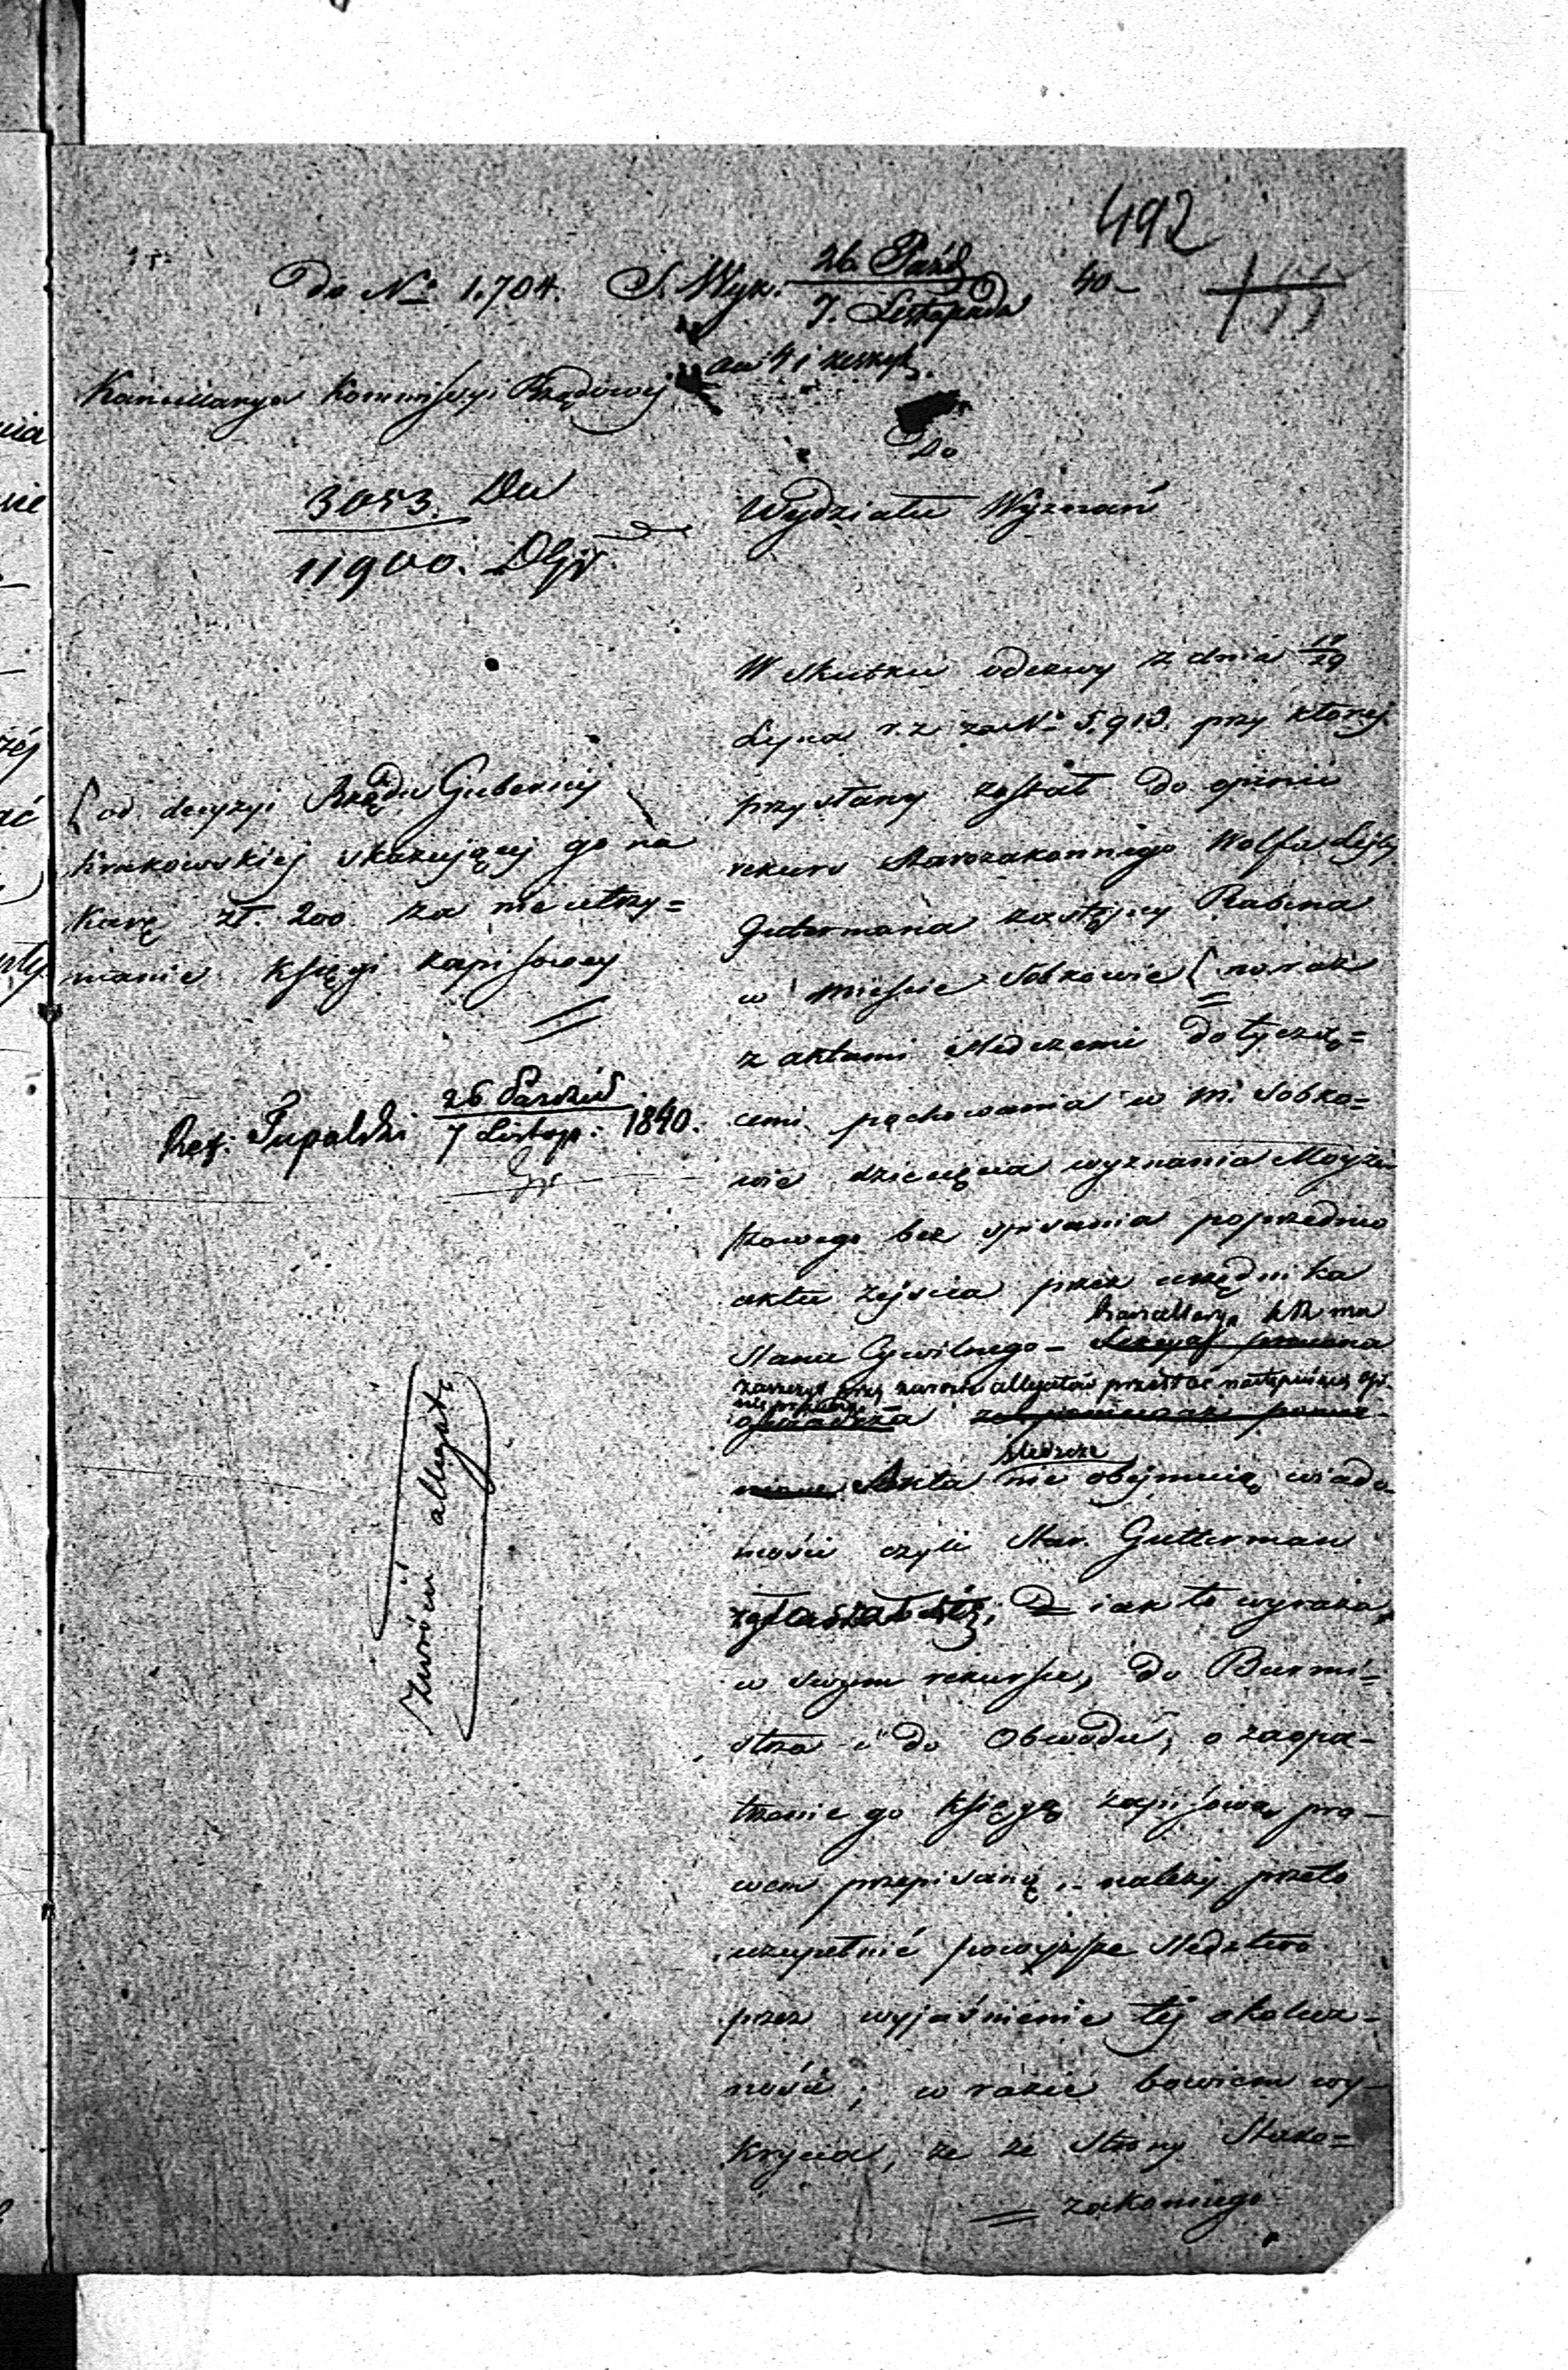 492
Do No 1.704. S. Wyk. 26 Paźd 40
7. Listopada
Kancellarya Kommissyi Rządowej
Do
3053. Du
11900.
Wydziału Wyznań
W skutku odezwy z dnia 17/29
r. z. za No 5.913. przy której
przysłany został do opinii
rekurs Starozakonnego Wolfa Lejby
Gutermana zastępcy Rabina
w mieście Sobkowie [ wraz
z aktami śledczemi dotyczą=
cemi pochowania w m. Sobko=
wie dziecięcia wyznania Moyże
szowego bez spisania poprzednio
aktu zejścia przez urzędnika
Kancellarya KR ma
Stanu Cywilnego –
zaszczyt przy zwrocie allegatów przesłać następującą opi
śledcze
Akta nie obejmują wiado
mości czyli Star. Gutterman
zgłaszał się, iak to wyraża
w swym rekursie, do Burmi=
strza i do Obwodu, o zaopa=
trzenie go księgą zapisową pra=
wem przepisaną, – należy przeto
uzupełnić powyższe śledztwo
przez wyjaśnienie tej okolicz=
ności; w razie bowiem wy=
krycia, że ze strony Staro=
= zakonnego
[ od decyzyi Rządu Gubernij
Krakowskiej skazującej go na
karę zł. 200 za nieutrzy=
manie księgi zapisowey
=
Ref: Tupalski 26 Paźdz 1840.
7 Listop:
zwrócić allegata